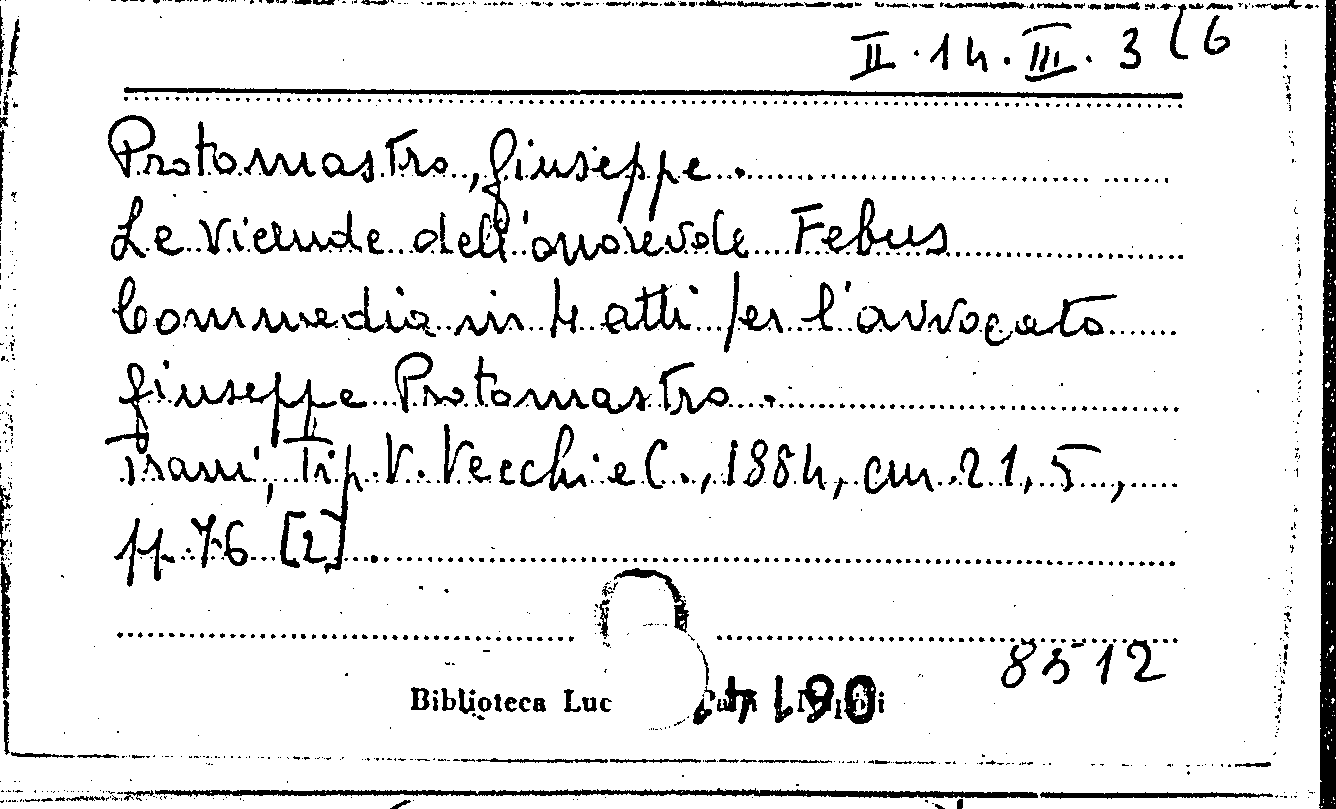 II. 14. III. 3 (6
Protomastro, Giuseppe.
Le vicende dell'onorevole Febus
Commedia in 4 atti per l'avvocato
Giuseppe Protomastro.
Trani, Tip. V. Vecchi e C., 1884, cm. 21,5,
pp. 76 [2].
8512
Biblioteca Luc